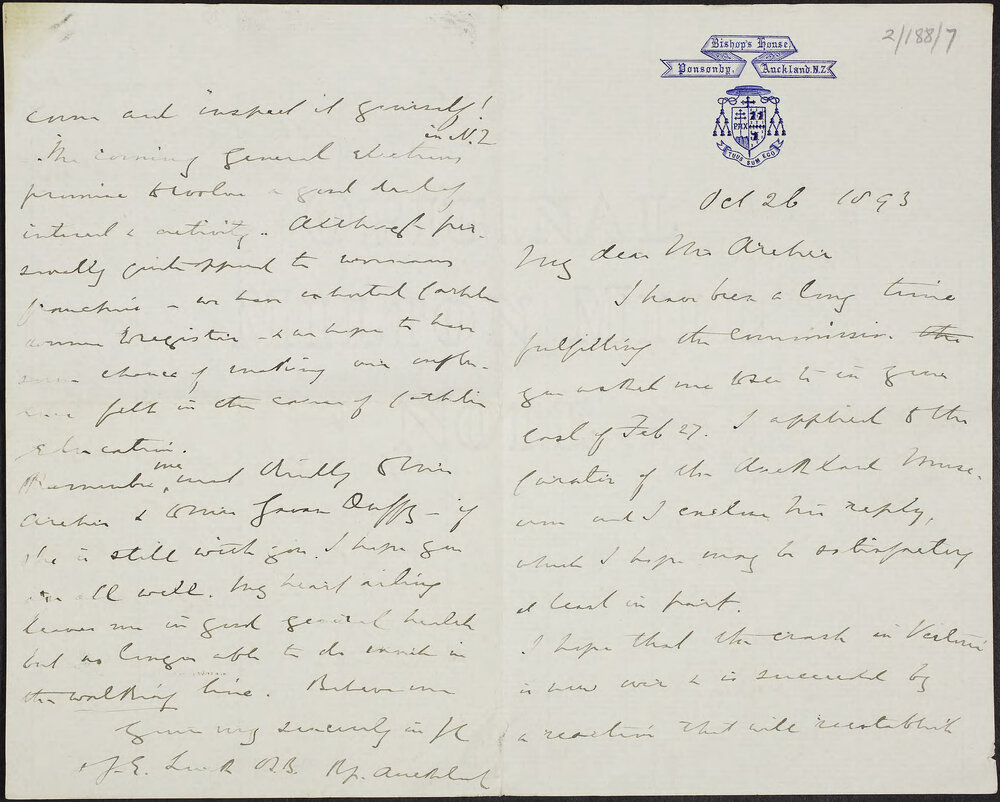 2/188/7
Bishop's House,
Ponsonby, Auckland. N.Z.
PAX
TUUS SUM EGO
Oct 26 1893
My dear Mr Archer
I have been a long time
fulfilling the commission the
you asked me to see to in yours
last of Feb 27. I applied to the
Curator of the Auckland Muse-
um and I enclose his reply,
which I hope may be satisfactory
at least in part.
I hope that the crash in Victoria
is now over & is succeeded by
a reaction that will reestablish
come and inspect it yourself!
The coming general elections in N.Z
promise to evolve a good deal of
interest & activity. Although per-
sonally quite opposed to womans
franchise - we have exhorted Catholic
women to register - & we hope to have
some chance of making our influ-
ence felt in the cause of Catholic
education.
Remember me most kindly to Mrs
Archer & to Mrs Gavan Duffy - if
she is still with you. I hope you
are all well. My heart ailing
leaves me in good general health
but no longer able to do much in
the walking line. Believe me
Yours very sincerely in JC
+ J. E. Luck O.S.B. Bp. Auckland